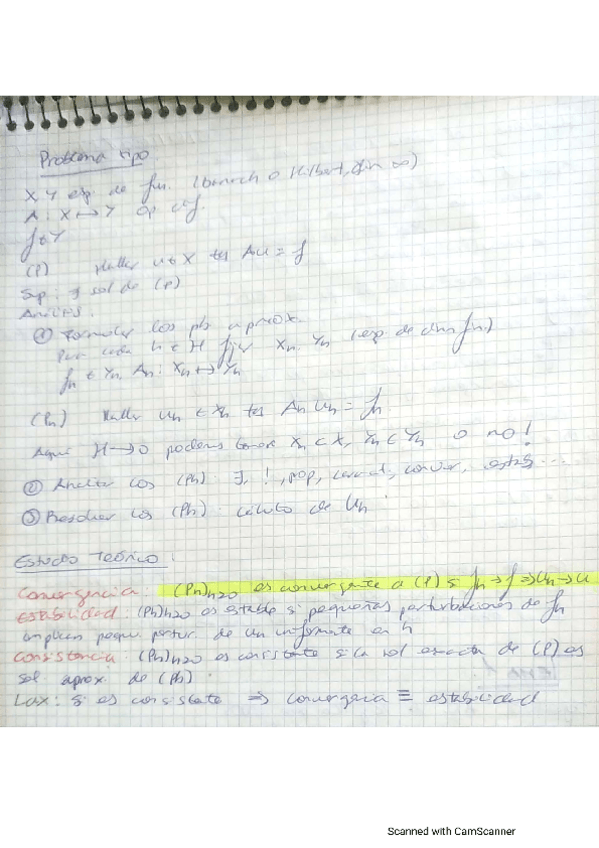 Problema tipo
X Y esp. de fun. (banach o Hilbert, dim ∞)
A: X → Y op
f ∈ Y
(P) Hallar u ∈ X tq Au = f
Sup: ∃ sol de (P)
① Formular los pb aprox.
Para cada h ∈ H fijar Xh Yh (esp. de dim fin.)
fh ∈ Yh, Ah: Xh → Yh
(Ph) Hallar uh ∈ Xh tq Ah uh = fh
Aquí H→0 podemos tener Xh ⊂ X, Yh ⊂ Yh o no!
② Analizar los (Ph) ∃, !, prop, conver, estab...
③ Resolver los (Ph) cálculo de Uh
Estudio Teórico:
Convergencia: (Ph)h≥0 es convergente a (P) si fh → f ⇒ Uh → u
Estabilidad: (Ph)h≥0 es estable si pequeñas perturbaciones de fh
implican pequ. pertur. de Un informente en h
Consistencia: (Ph)h≥0 es consistente si la sol exacta de (P) es
sol aprox. de (Ph)
Lax: Si es consistente ⇒ convergencia ≡ estabilidad
Scanned with CamScanner